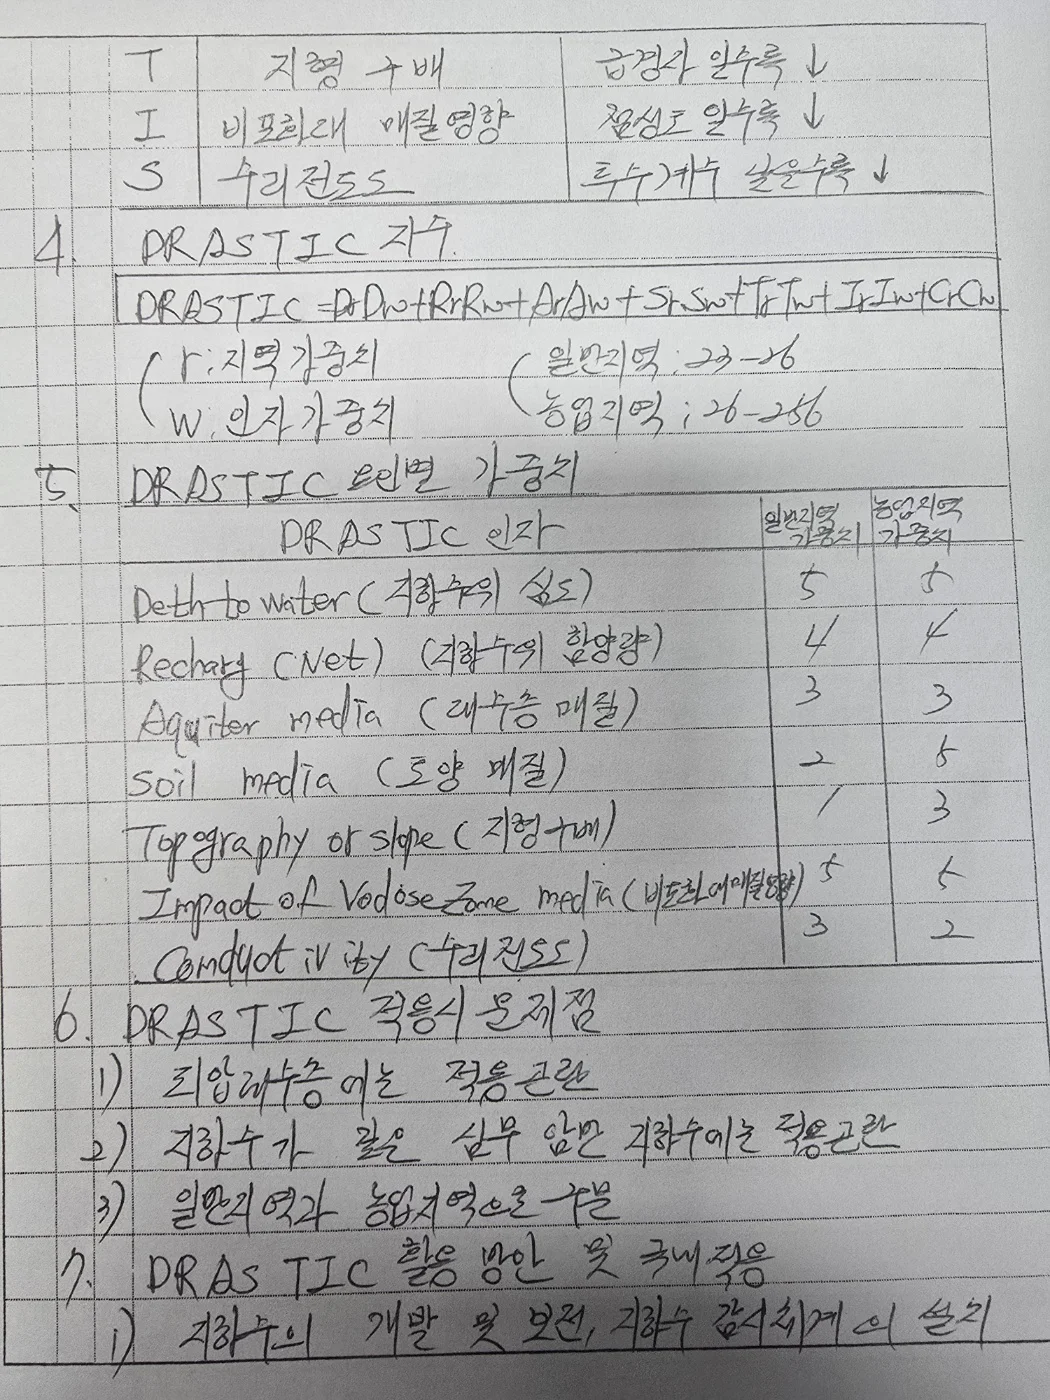 T 지형 구배 급경사 일수록 ↓
I 비포화대 매질영향 점성토 일수록 ↓
S 수리전도도 투수계수 낮을수록 ↓
4. DRASTIC 지수.
DRASTIC = DrDw+RrRw+ArAw+SrSw+TrTw+IrIw+CrCw
r : 지역가중치 일반지역 : 23-26
W : 인자가중치 농업지역 : 26-256
5. DRASTIC 요인별 가중치
DRASTIC 인자 일반지역 가중치 농업지역 가중치
Deth to water (지하수의 심도) 5 5
Recharg (Net) (지하수의 함양량) 4 4
Aquiter media (대수층 매질) 3 3
Soil media (토양 매질) 2 5
Topography or slope (지형구배) 1 3
Impact of Vodose Zone media (비포화대매질영향) 5 5
Conductivity (수리전도도) 3 2
6. DRASTIC 적용시 문제점
1) 피압대수층에는 적용곤란
2) 지하수가 깊은 심부 암반 지하수에는 적용곤란
3) 일반지역과 농업지역으로 구분
7. DRASTIC 활용 방안 및 국내적용
1) 지하수의 개발 및 보전, 지하수 감시체계의 설치